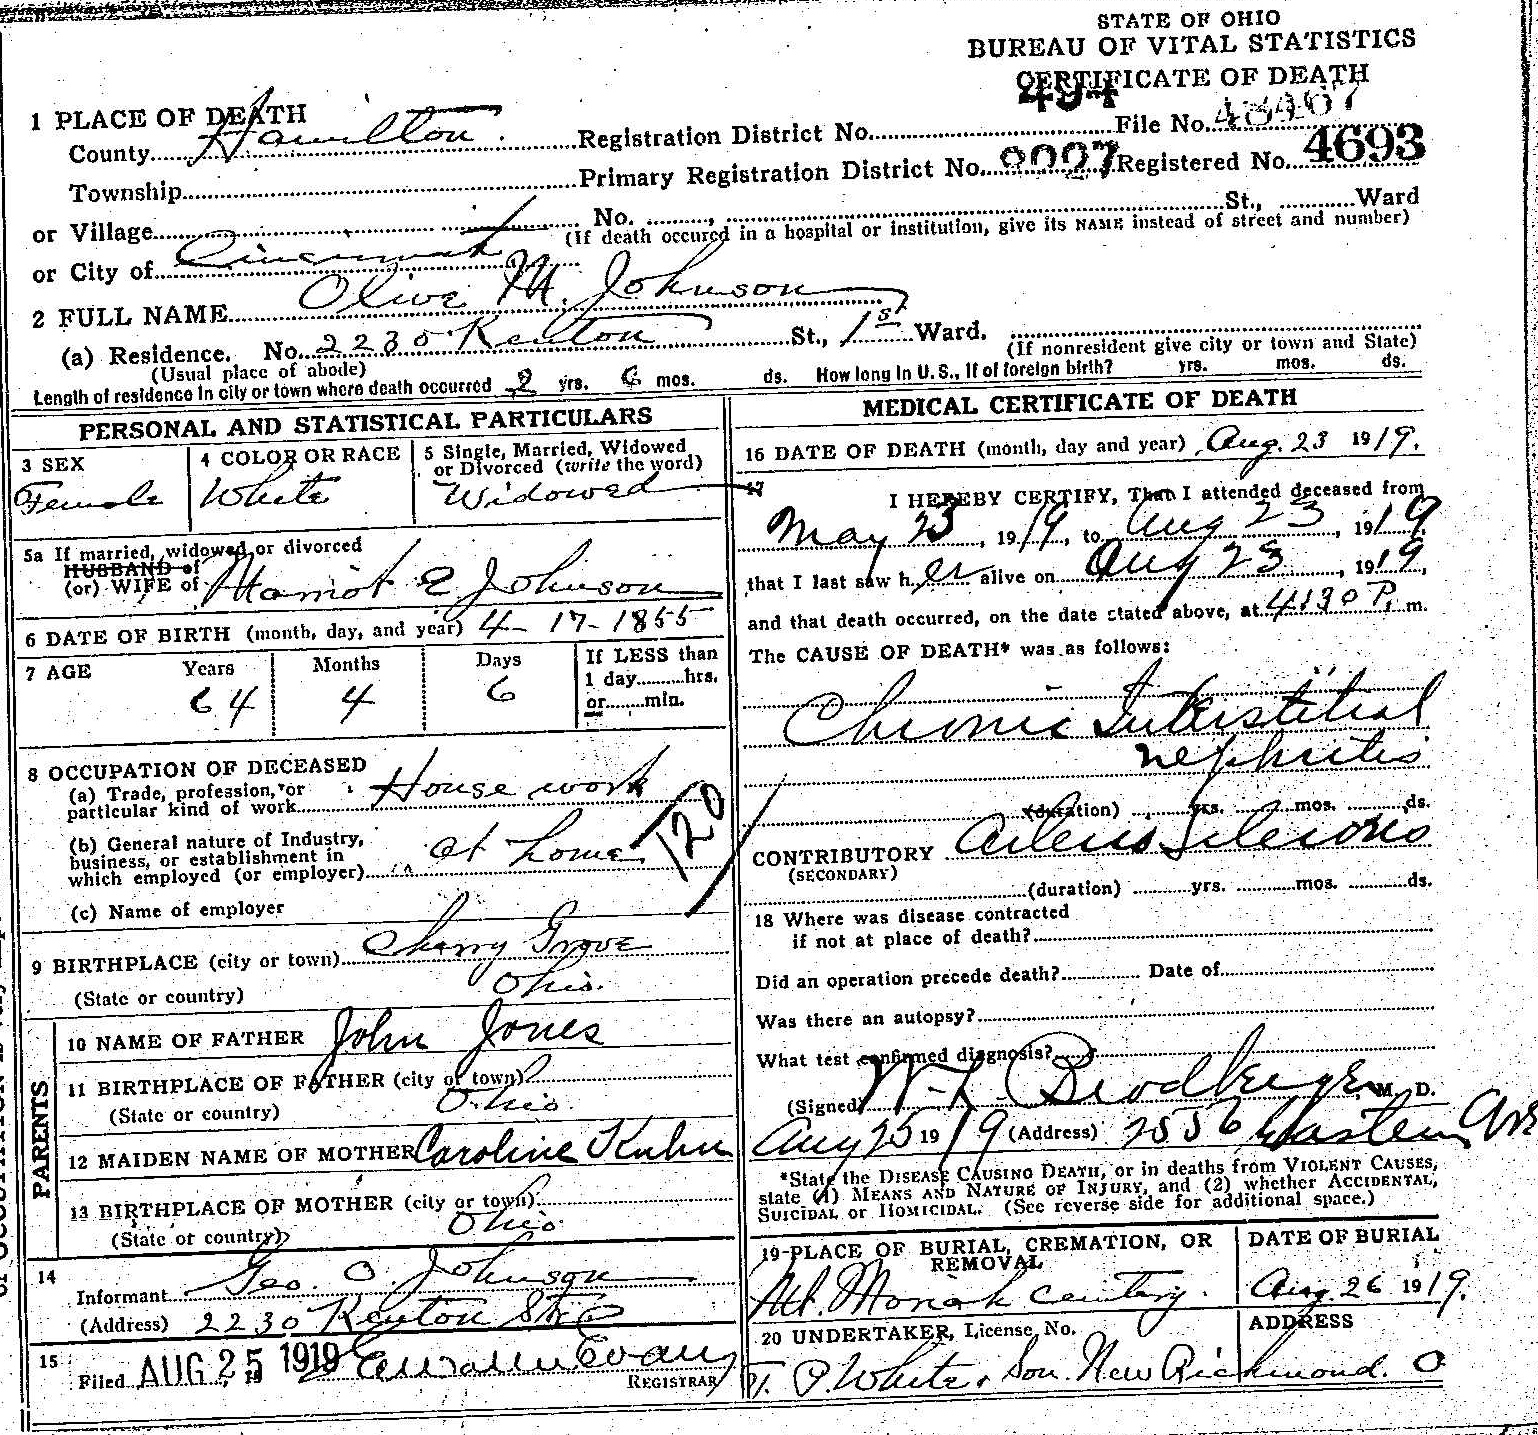 STATE OF OHIO
BUREAU OF VITAL STATISTICS
CERTIFICATE OF DEATH
1 PLACE OF DEATH
County Hamilton. Registration District No. 494 File No. 48467
Township Primary Registration District No. 8227 Registered No. 4693
or Village No. , St., Ward
(If death occured in a hospital or institution, give its NAME instead of street and number)
or City of Cincinnati
2 FULL NAME Olive M. Johnson
(a) Residence. No. 2230 Kenton St., 1st Ward.
(Usual place of abode) (If nonresident give city or town and State)
Length of residence in city or town where death occurred 2 yrs. 6 mos. ds. How long in U. S., if of foreign birth? yrs. mos. ds.
PERSONAL AND STATISTICAL PARTICULARS
3 SEX
Female
4 COLOR OR RACE
White
5 Single, Married, Widowed
or Divorced (write the word)
Widowed
5a If married, widowed or divorced
HUSBAND of
(or) WIFE of E Johnson
6 DATE OF BIRTH (month, day, and year) 4 - 17 - 1855
7 AGE Years Months Days If LESS than
1 day hrs.
64 4 6 or min.
8 OCCUPATION OF DECEASED
(a) Trade, profession, or
particular kind of work House work
(b) General nature of Industry,
business, or establishment in
which employed (or employer) at home
120
(c) Name of employer
9 BIRTHPLACE (city or town) Cherry Grove
(State or country) Ohio.
PARENTS
10 NAME OF FATHER John Jones
11 BIRTHPLACE OF FATHER (city or town)
(State or country) Ohio.
12 MAIDEN NAME OF MOTHER Caroline Kuhn
13 BIRTHPLACE OF MOTHER (city or town)
(State or country) Ohio.
14
Informant Geo. O Johnson
(Address) 2230 Kenton St
15
Filed AUG 25 1919 Evans
REGISTRAR
MEDICAL CERTIFICATE OF DEATH
16 DATE OF DEATH (month, day and year) Aug. 23 1919.
17
I HEREBY CERTIFY, That I attended deceased from
May 23, 1919, to Aug 23, 1919
that I last saw her alive on Aug 23, 1919,
and that death occurred, on the date stated above, at 4:30 P. m.
The CAUSE OF DEATH* was as follows:
Chronic Interstitial
nephritis
(duration) yrs. mos. ds.
CONTRIBUTORY
(SECONDARY)
(duration) yrs. mos. ds.
18 Where was disease contracted
if not at place of death?
Did an operation precede death? Date of
Was there an autopsy?
What test confirmed diagnosis?
(Signed) M. D.
Aug 25 1919 (Address) 2556 Eastern Ave
*State the DISEASE CAUSING DEATH, or in deaths from VIOLENT CAUSES,
state (1) MEANS AND NATURE OF INJURY, and (2) whether ACCIDENTAL,
SUICIDAL or HOMICIDAL. (See reverse side for additional space.)
19 PLACE OF BURIAL, CREMATION, OR
REMOVAL
Mt. Moriah
DATE OF BURIAL
Aug. 26 1919.
20 UNDERTAKER, License No.
ADDRESS
T. P. White, Son. New Richmond. O